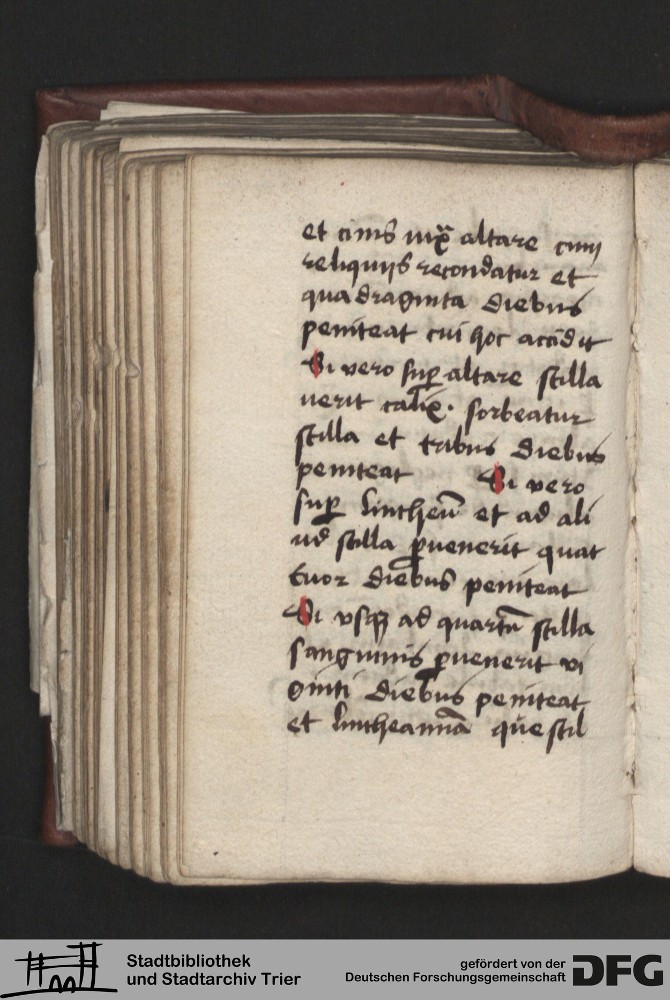 et cinis iuxͣ altare cum
reliquijs recondatur et
quadraginta diebus
peniteat cui hoc accidit
Si vero suꝑ altare stilla
uerit calix· sorbeatur
stilla et tribus diebus
peniteat Si vero
suꝑ lintheū et ad ali
ud stilla ꝑuenerit quat
tuor diebus peniteat
Si vsqꝫ ad quartū stilla
sanguinis ꝑuenerit vi
ginti diebus peniteat
et lintheamīa que stil
Stadtbibliothek
und Stadtarchiv Trier
gefördert von der
Deutschen Forschungsgemeinschaft
DFG